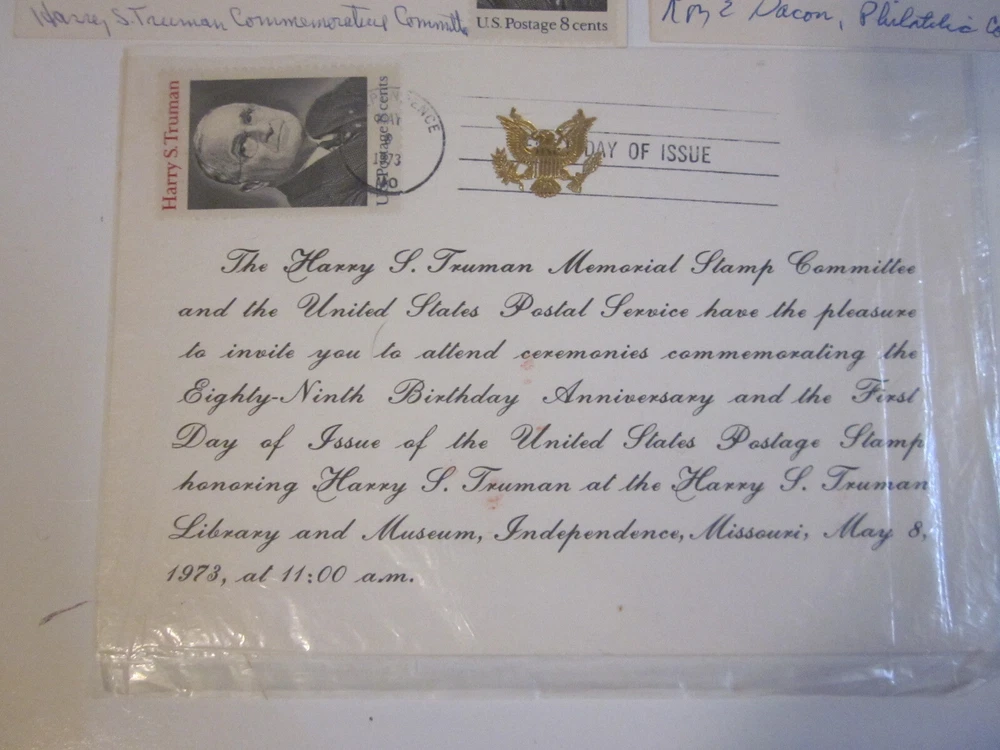 Harry S. Truman Commemorating Committe
U.S. Postage 8 cents
Roy E Dacon, Philatelic Co
Harry S. Truman
U.S. Postage 8 cents
MAY
8
1973
DAY OF ISSUE
The Harry S. Truman Memorial Stamp Committee
and the United States Postal Service have the pleasure
to invite you to attend ceremonies commemorating the
Eighty-Ninth Birthday Anniversary and the First
Day of Issue of the United States Postage Stamp
honoring Harry S. Truman at the Harry S. Truman
Library and Museum, Independence, Missouri, May 8,
1973, at 11:00 a.m.